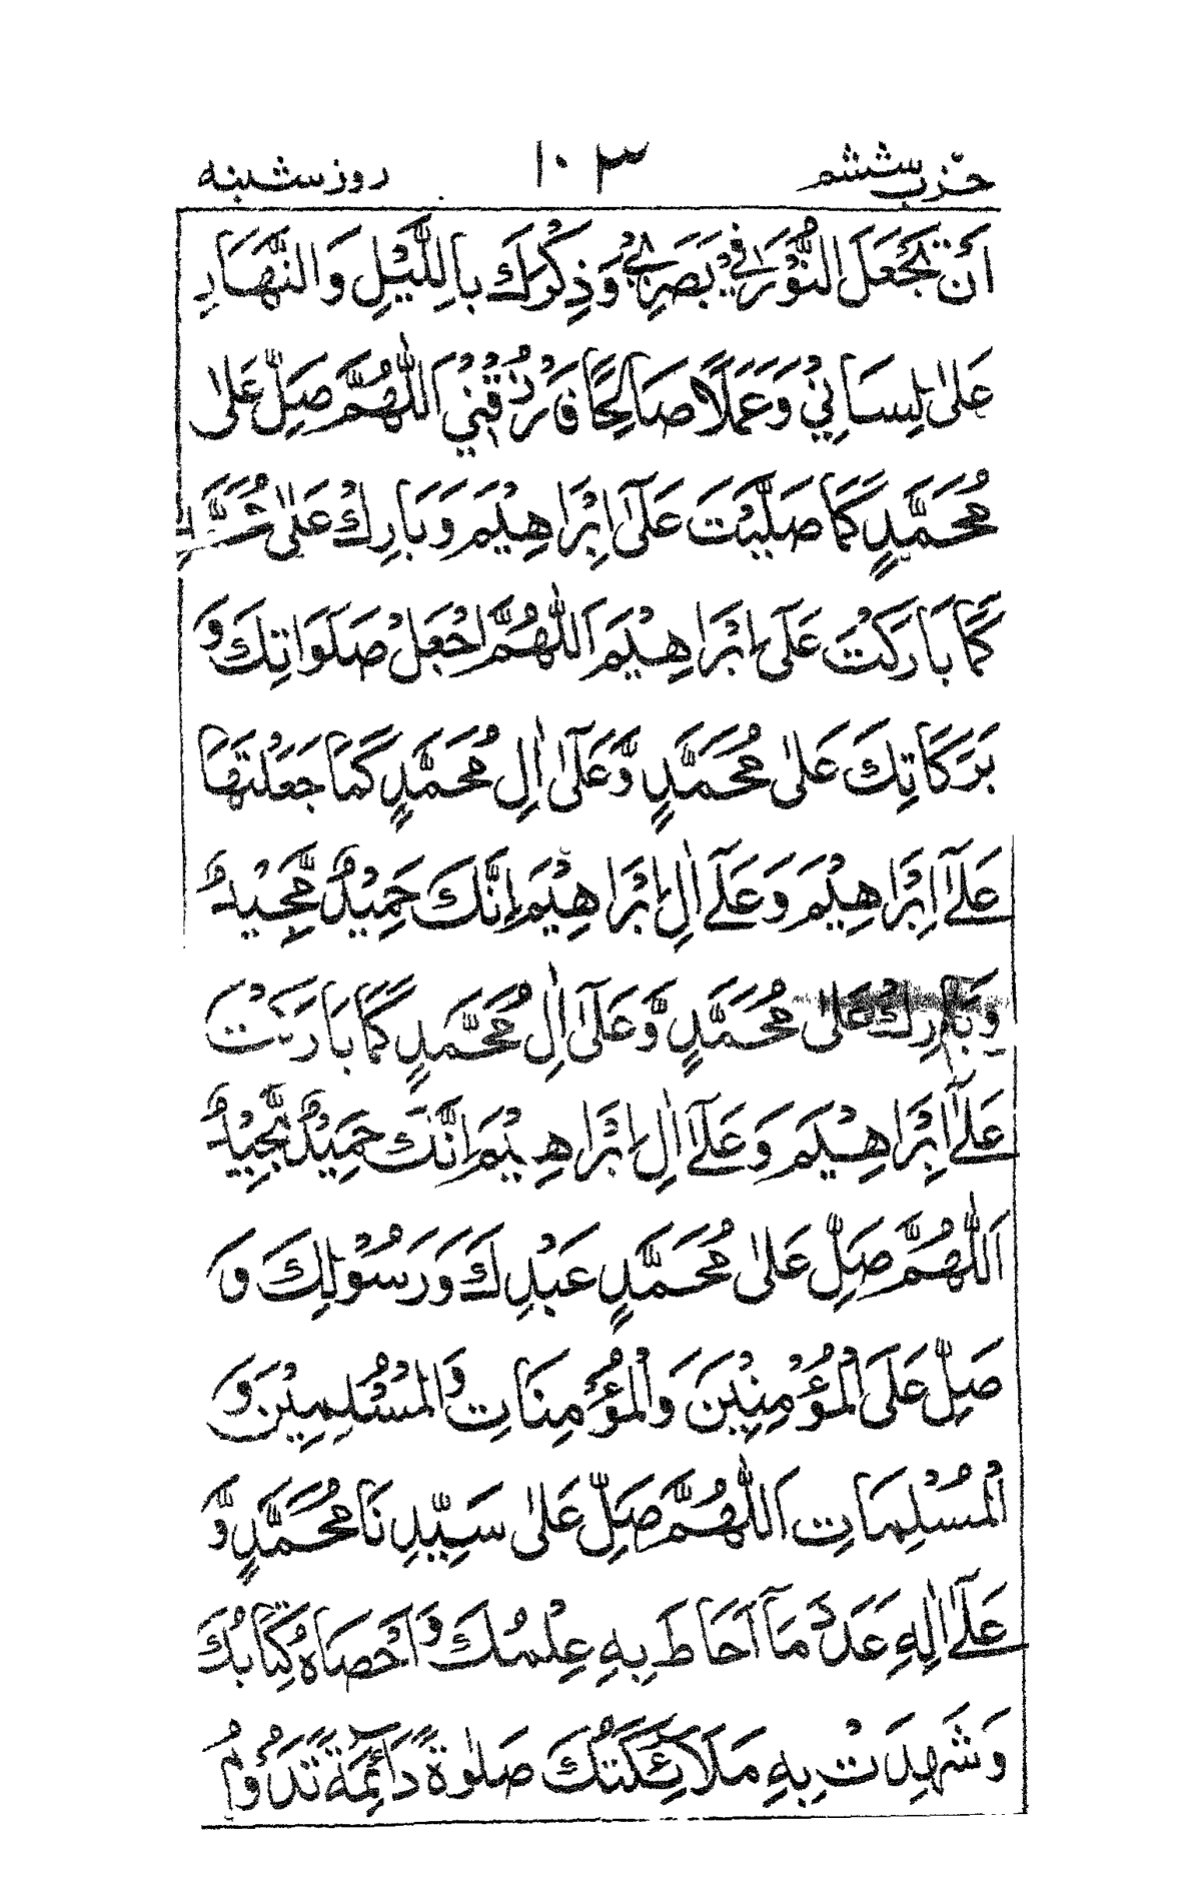 حزب ششم ١٠٣ روز شنبه
اَنْ تَجْعَلَ النُّوْرَ فِيْ بَصَرِيْ وَذِكْرَكَ بِاللَّيْلِ وَالنَّهَارِ
عَلٰى لِسَانِيْ وَعَمَلًا صَالِحًا فَارْزُقْنِيْ اَللّٰهُمَّ صَلِّ عَلٰى
مُحَمَّدٍ كَمَا صَلَّيْتَ عَلٰٓى اِبْرَاهِيْمَ وَبَارِكْ عَلٰى مُحَمَّدٍ
كَمَا بَارَكْتَ عَلٰٓى اِبْرَاهِيْمَ اَللّٰهُمَّ اجْعَلْ صَلَوَاتِكَ وَ
بَرَكَاتِكَ عَلٰى مُحَمَّدٍ وَّعَلٰٓى اٰلِ مُحَمَّدٍ كَمَا جَعَلْتَهَا
عَلٰٓى اِبْرَاهِيْمَ وَعَلٰٓى اٰلِ اِبْرَاهِيْمَ اِنَّكَ حَمِيْدٌ مَّجِيْدٌ
وَبَارِكْ عَلٰى مُحَمَّدٍ وَّعَلٰٓى اٰلِ مُحَمَّدٍ كَمَا بَارَكْتَ
عَلٰٓى اِبْرَاهِيْمَ وَعَلٰٓى اٰلِ اِبْرَاهِيْمَ اِنَّكَ حَمِيْدٌ مَّجِيْدٌ
اَللّٰهُمَّ صَلِّ عَلٰى مُحَمَّدٍ عَبْدِكَ وَرَسُوْلِكَ وَ
صَلِّ عَلَى الْمُؤْمِنِيْنَ وَالْمُؤْمِنَاتِ وَالْمُسْلِمِيْنَ وَ
الْمُسْلِمَاتِ اَللّٰهُمَّ صَلِّ عَلٰى سَيِّدِنَا مُحَمَّدٍ وَّ
عَلٰٓى اٰلِهِ عَدَدَ مَآ اَحَاطَ بِهِ عِلْمُكَ وَاَحْصَاهُ كِتَابُكَ
وَشَهِدَتْ بِهِ مَلَائِكَتُكَ صَلٰوةً دَآئِمَةً تَدُوْمُ